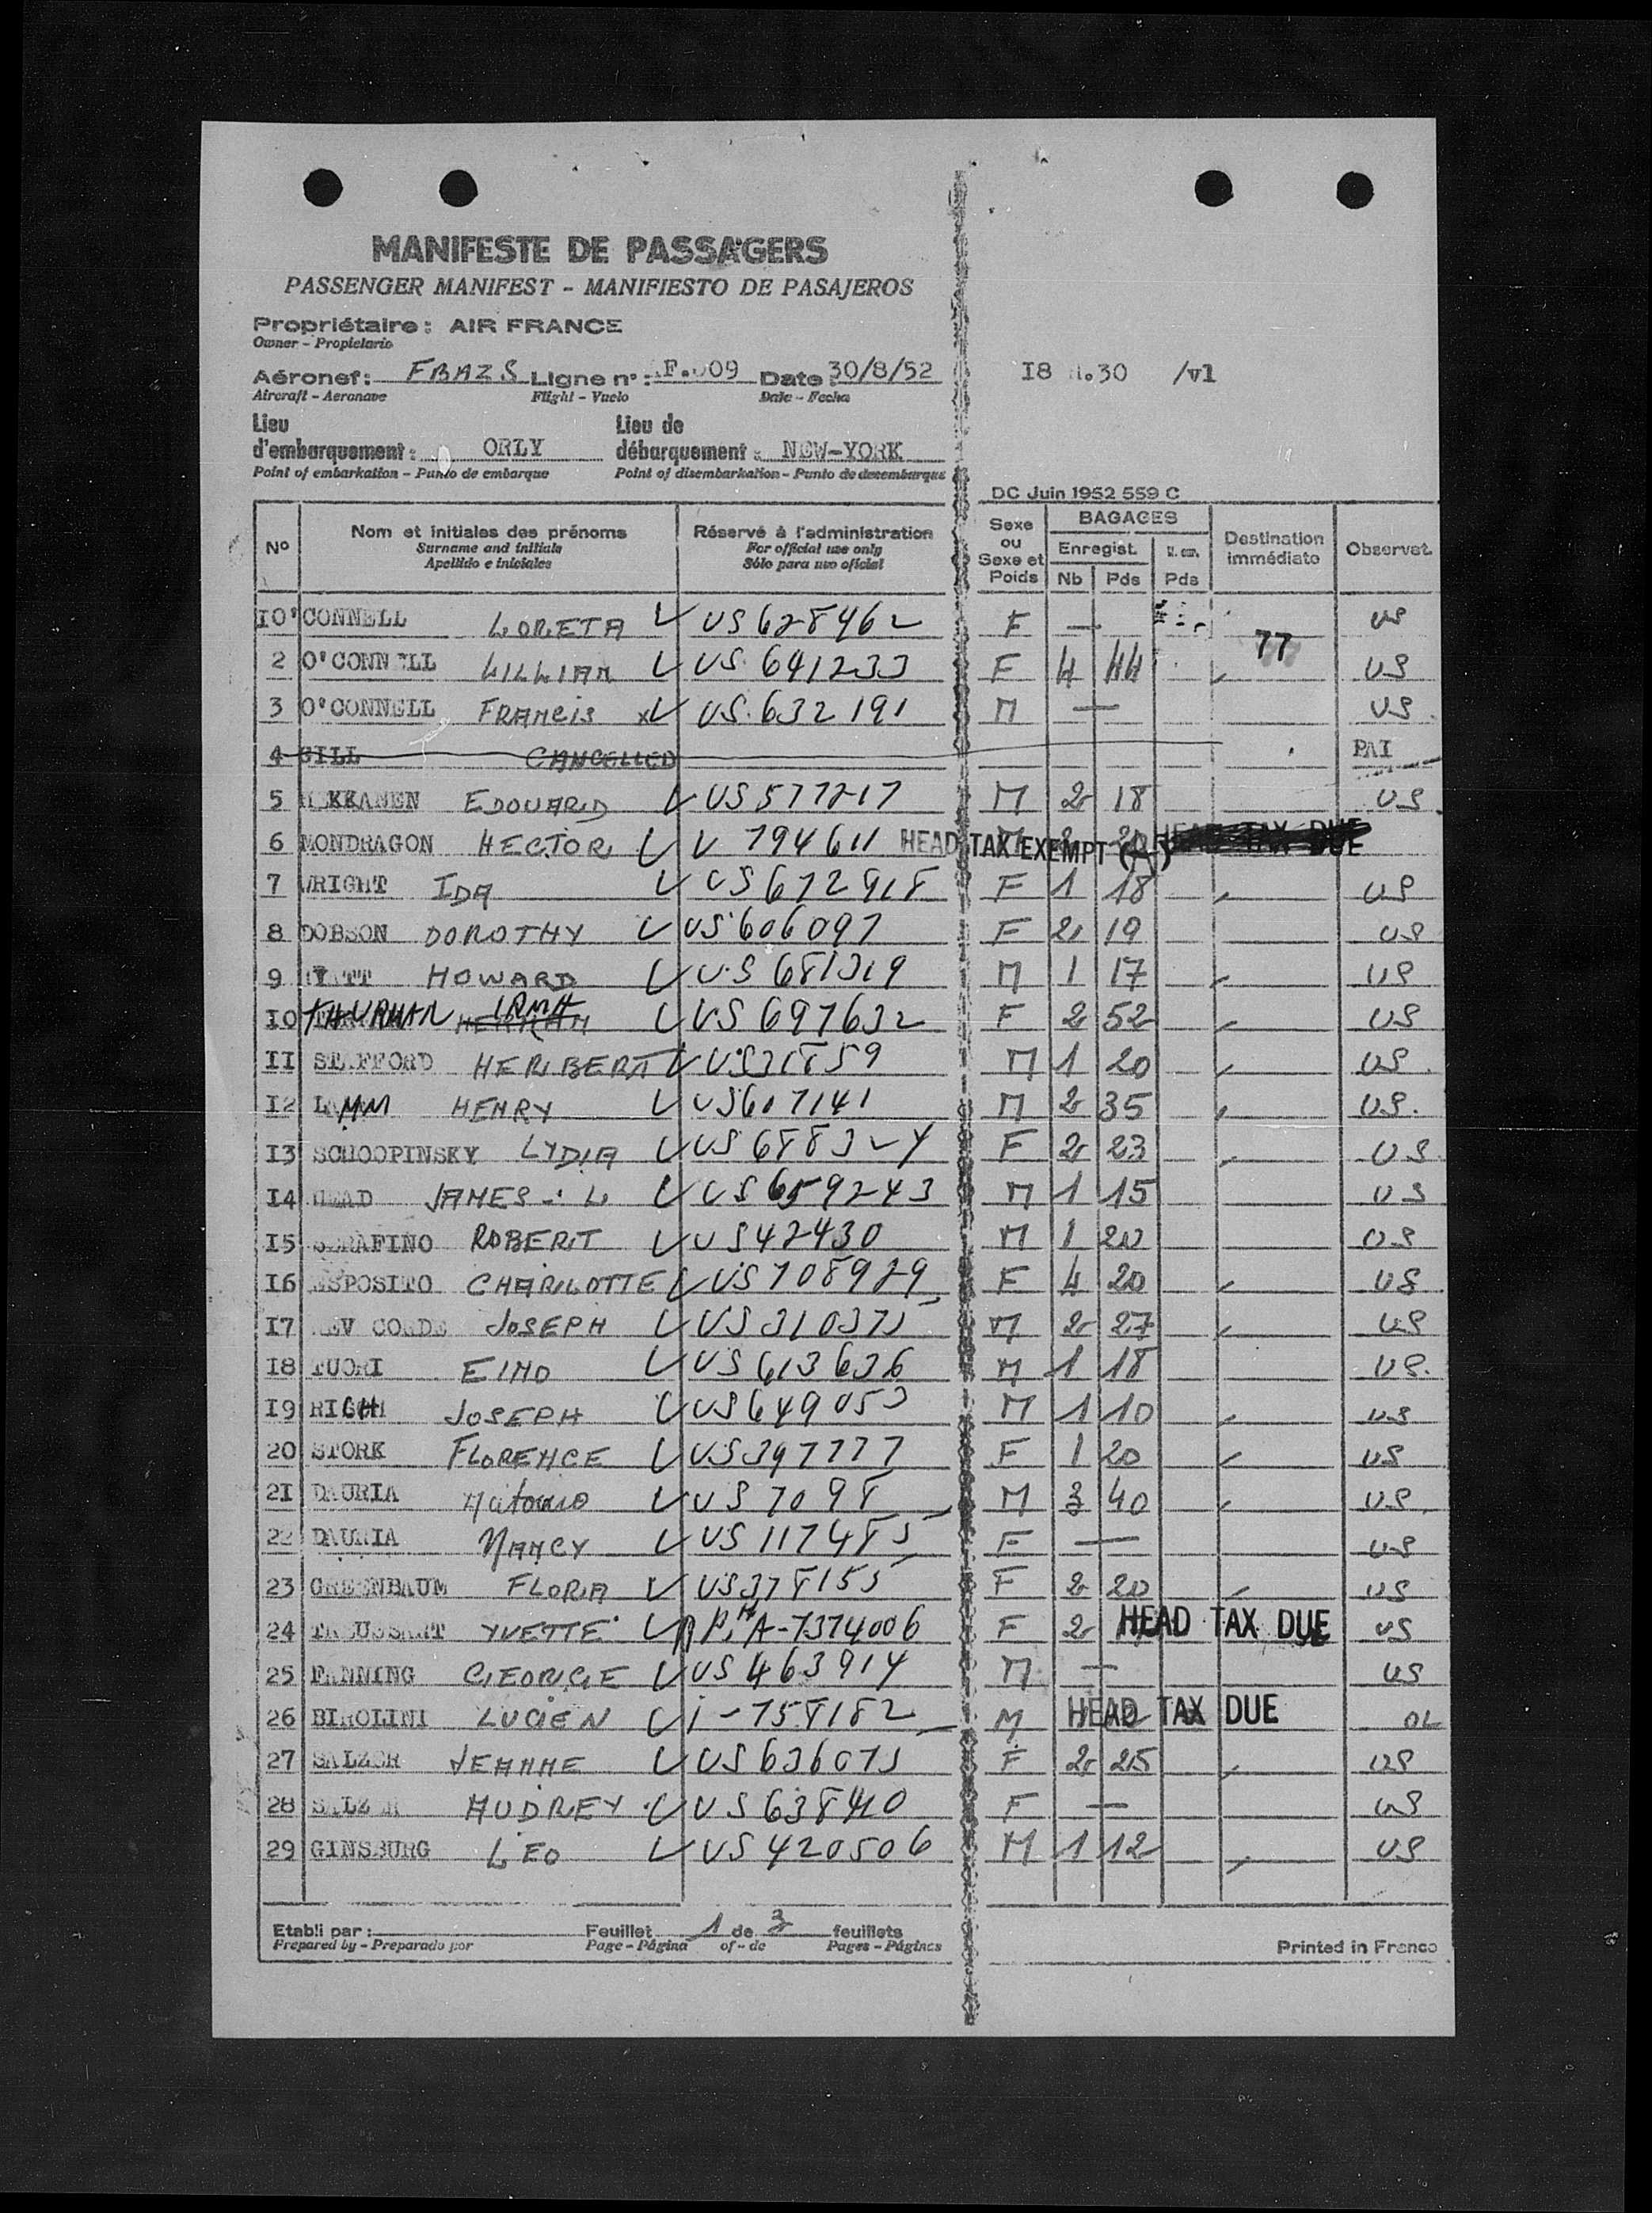 MANIFESTE DE PASSAGERS
PASSENGER MANIFEST - MANIFIESTO DE PASAJEROS
Propriétaire : AIR FRANCE
Owner - Propietario
Aéronef : FBAZS Ligne n° : AF.009 Date : 30/8/52 I8 H.30 /vl
Aircraft - Aeronave Flight - Vuelo Date - Fecha
Lieu d'embarquement : ORLY Lieu de débarquement : NEW-YORK
Point of embarkation - Punto de embarque Point of disembarkation - Punto de desembarque
DC Juin 1952 559 C
N° Nom et initiales des prénoms Réservé à l'administration Sexe ou Sexe et Poids BAGAGES Destination immédiate Observat.
Surname and initials For official use only Enregist.
Apellido e iniciales Sólo para uso oficial Nb Pds Pds
I O'CONNELL LORETA US 628462 F — US
77
2 O'CONNELL LILLIAN US 641233 F 4 44 US
3 O'CONNELL FRANCIS x US 632191 M — US
4 GILL CANCELLED PAI
5 EDOUARD US 577217 M 2 18 US
6 MONDRAGON HECTOR V 794611 HEAD TAX EXEMPT (A) HEAD TAX DUE
7 WRIGHT IDA US 672918 F 1 18 US
8 DOBSON DOROTHY US 606097 F 2 19 US
9 HOWARD US 681319 M 1 17 US
IO THURMAN IRMA US 697632 F 2 52 US
II STAFFORD HERIBERT US 31859 M 1 20 US
I2 LAMM HENRY US 607141 M 2 35 US.
I3 SCHOOPINSKY LYDIA US 688324 F 2 23 US
I4 HEAD JAMES - L US 659243 M 1 15 US
I5 SERAFINO ROBERT US 42430 M 1 20 US
I6 ESPOSITO CHARLOTTE US 708929 F 4 20 US
I7 REV JOSEPH US 310375 M 2 27 US
I8 TUORI EINO US 613636 M 1 18 US.
I9 RIGHI JOSEPH US 649053 M 1 10 US
20 STORK FLORENCE US 397777 F 1 20 US
2I DAURIA Antonio US 7098 M 3 40 US
22 DAURIA NANCY US 117485 F — US
23 GREENBAUM FLORIA US 378155 F 2 20 US
24 TROUSSART YVETTE A-7374006 F 2 HEAD TAX DUE US
25 FANNING GEORGE US 463914 M — US
26 BIROLINI LUCIEN I-758182 M HEAD TAX DUE
27 SALZER JEANNE US 636075 F 2 25 US
28 SALZER AUDREY US 638410 F — US
29 GINSBURG LEO US 420506 M 1 12 US
Etabli par : Feuillet 1 de 3 feuillets
Prepared by - Preparado por Page - Página of - de Pages - Páginas Printed in France